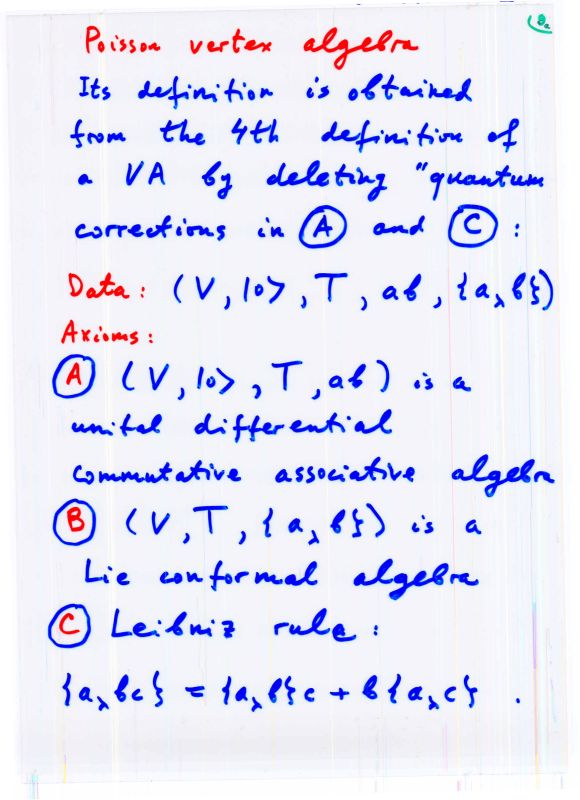 8a
Poisson vertex algebra
Its definition is obtained
from the 4th definition of
a VA by deleting "quantum
corrections in Ⓐ and Ⓒ :
Data: (V, |0>, T, ab, {a_λ b})
Axioms:
Ⓐ (V, |0>, T, ab) is a
unital differential
commutative associative algebra
Ⓑ (V, T, {a_λ b}) is a
Lie conformal algebra
Ⓒ Leibniz rule:
{a_λ bc} = {a_λ b}c + b{a_λ c} .